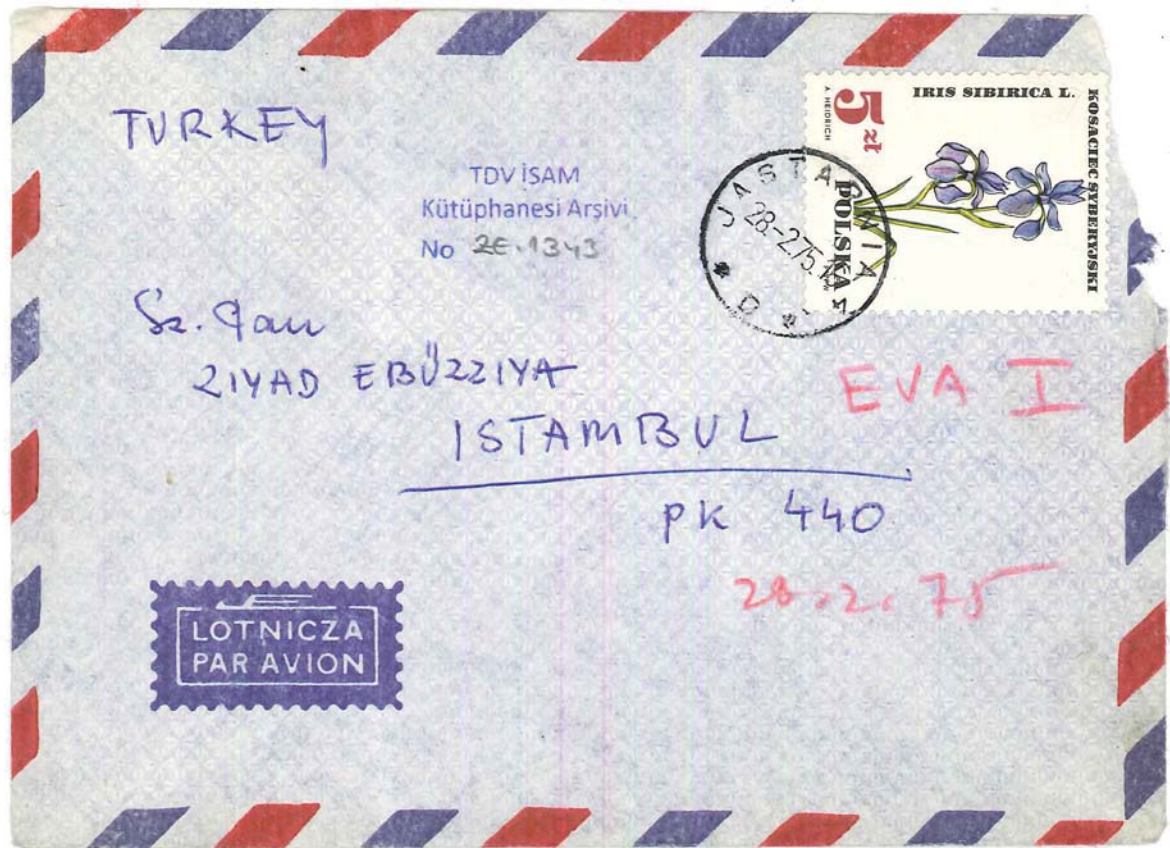 TURKEY
TDV İSAM
Kütüphanesi Arşivi
No ZE.1343
5 zł
A. HEIDRICH
IRIS SIBIRICA L.
KOSACIEC SYBERYJSKI
POLSKA
JASTARNIA
28-2.75.
* D *
Sz. Pan
ZIYAD EBÜZZIYA
EVA I
ISTAMBUL
PK 440
28.2.75
LOTNICZA
PAR AVION